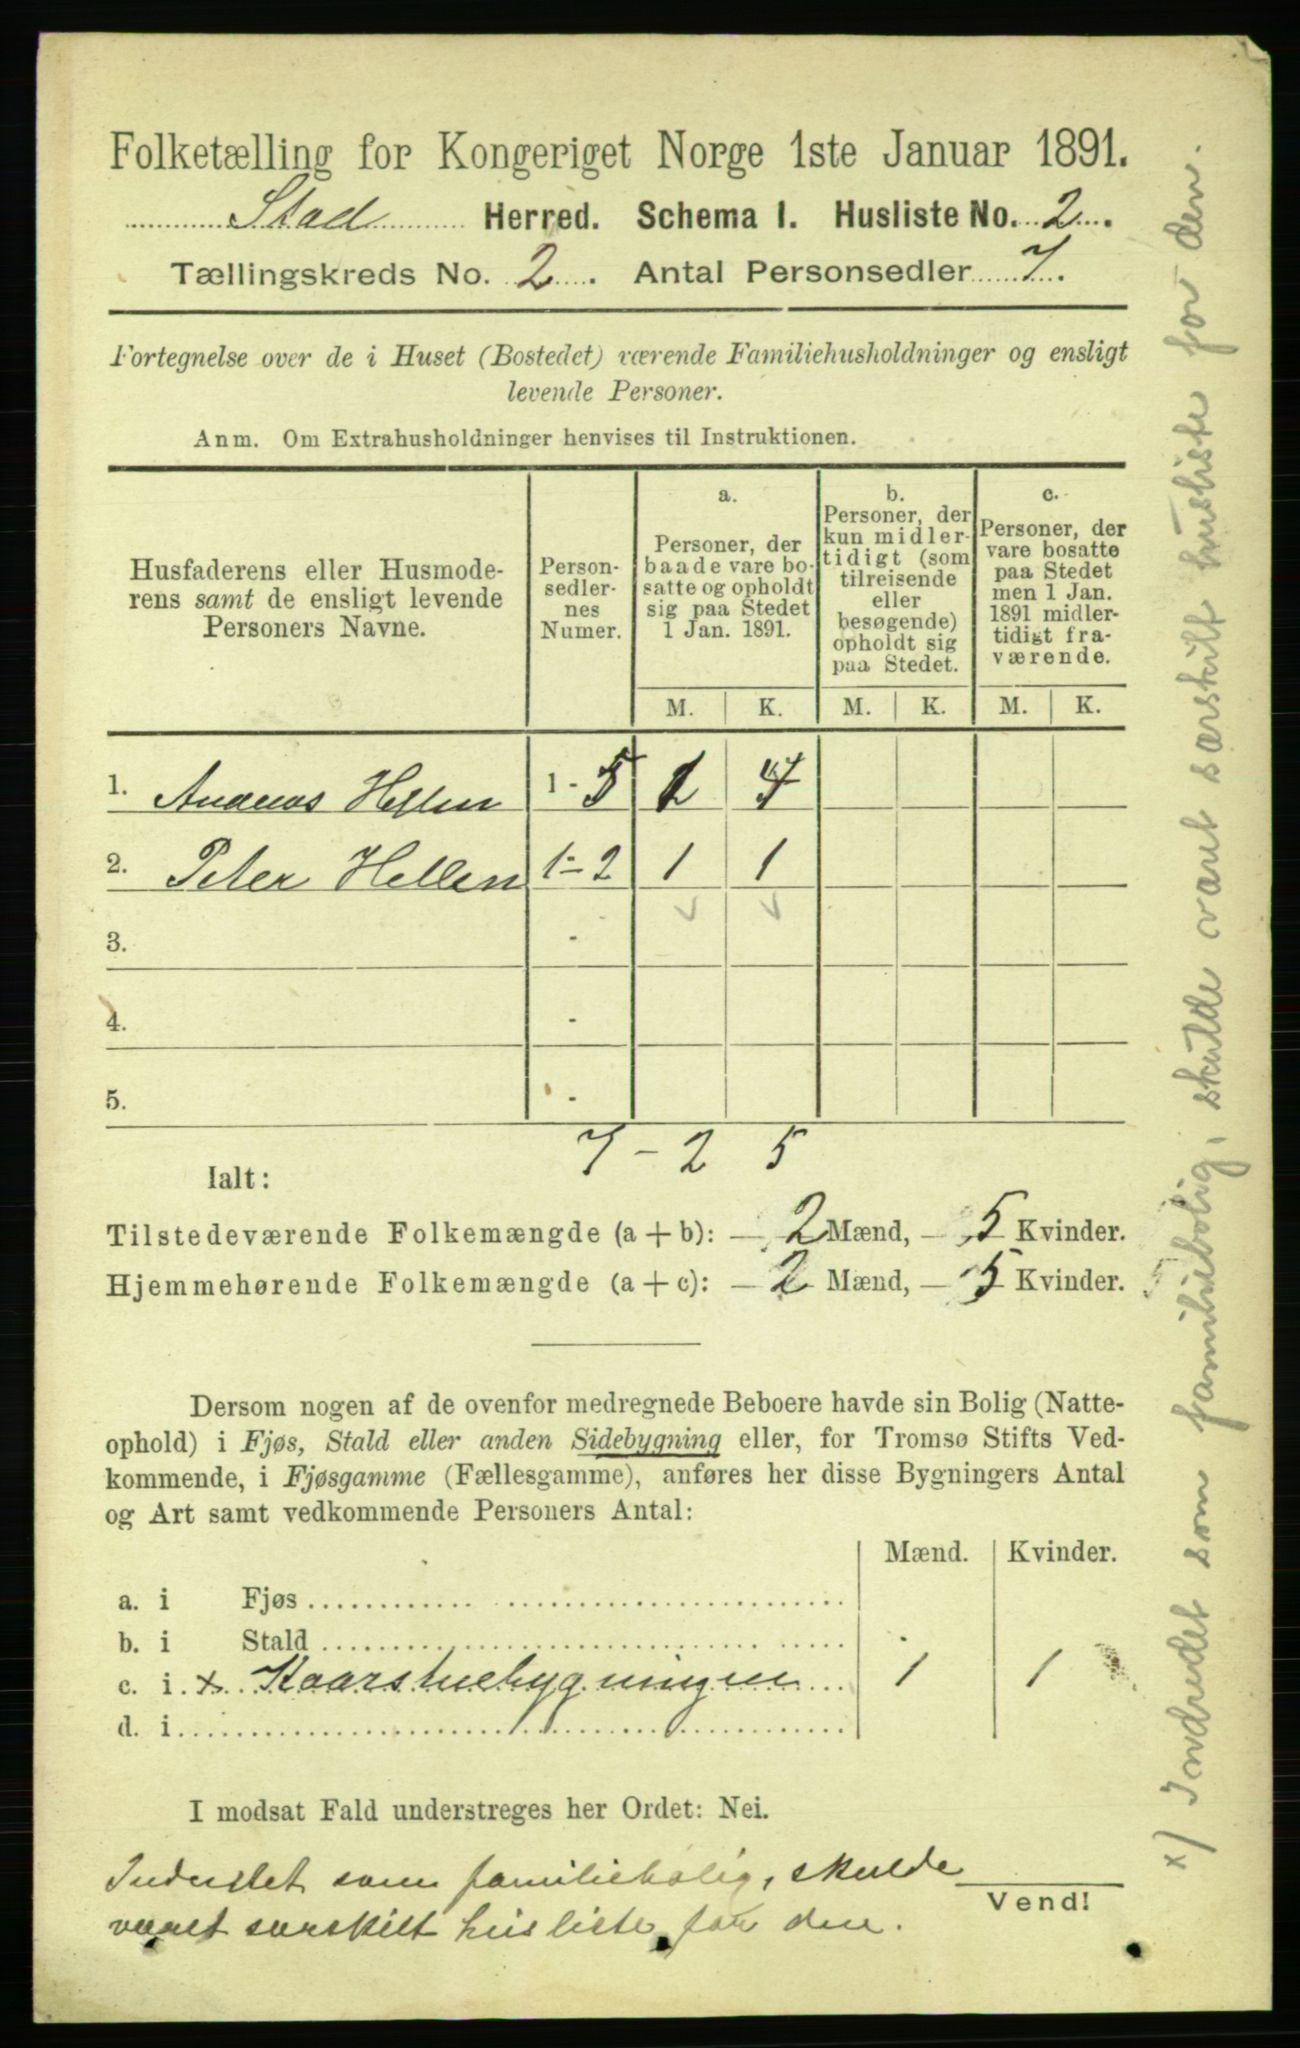 Folketælling for Kongeriget Norge 1ste Januar 1891.
Stad Herred. Schema I. Husliste No. 2.
Tællingskreds No. 2. Antal Personsedler 7.
Fortegnelse over de i Huset (Bostedet) værende Familiehusholdninger og ensligt
levende Personer.
Anm. Om Extrahusholdninger henvises til Instruktionen.
Husfaderens eller Husmode-
rens samt de ensligt levende
Personers Navne.
Person-
sedler-
nes
Numer.
a.
Personer, der
baade vare bo-
satte og opholdt
sig paa Stedet
1 Jan. 1891.
b.
Personer, der
kun midler-
tidigt (som
tilreisende
eller
besøgende)
opholdt sig
paa Stedet.
c.
Personer, der
vare bosatte
paa Stedet
men 1 Jan.
1891 midler-
tidigt fra-
værende.
M. K. M. K. M. K.
1. Andreas Hellen 1 - 5 1 4
2. Peter Hellen 1 - 2 1 1
3. -
4. -
5. -
7 - 2 5
Ialt:
Tilstedeværende Folkemængde (a + b): — 2 Mænd, — 5 Kvinder.
Hjemmehørende Folkemængde (a + c): — 2 Mænd, — 5 Kvinder.
Dersom nogen af de ovenfor medregnede Beboere havde sin Bolig (Natte-
ophold) i Fjøs, Stald eller anden Sidebygning eller, for Tromsø Stifts Ved-
kommende, i Fjøsgamme (Fællesgamme), anføres her disse Bygningers Antal
og Art samt vedkommende Personers Antal:
Mænd. Kvinder.
a. i Fjøs
b. i Stald
c. i x Kaarstuebygningen 1 1
d. i
I modsat Fald understreges her Ordet: Nei.
Indredet som familiebolig, skulde
været særskilt husliste for den.
Vend!
x) Indredet som familiebolig, skulde været særskilt husliste for den.